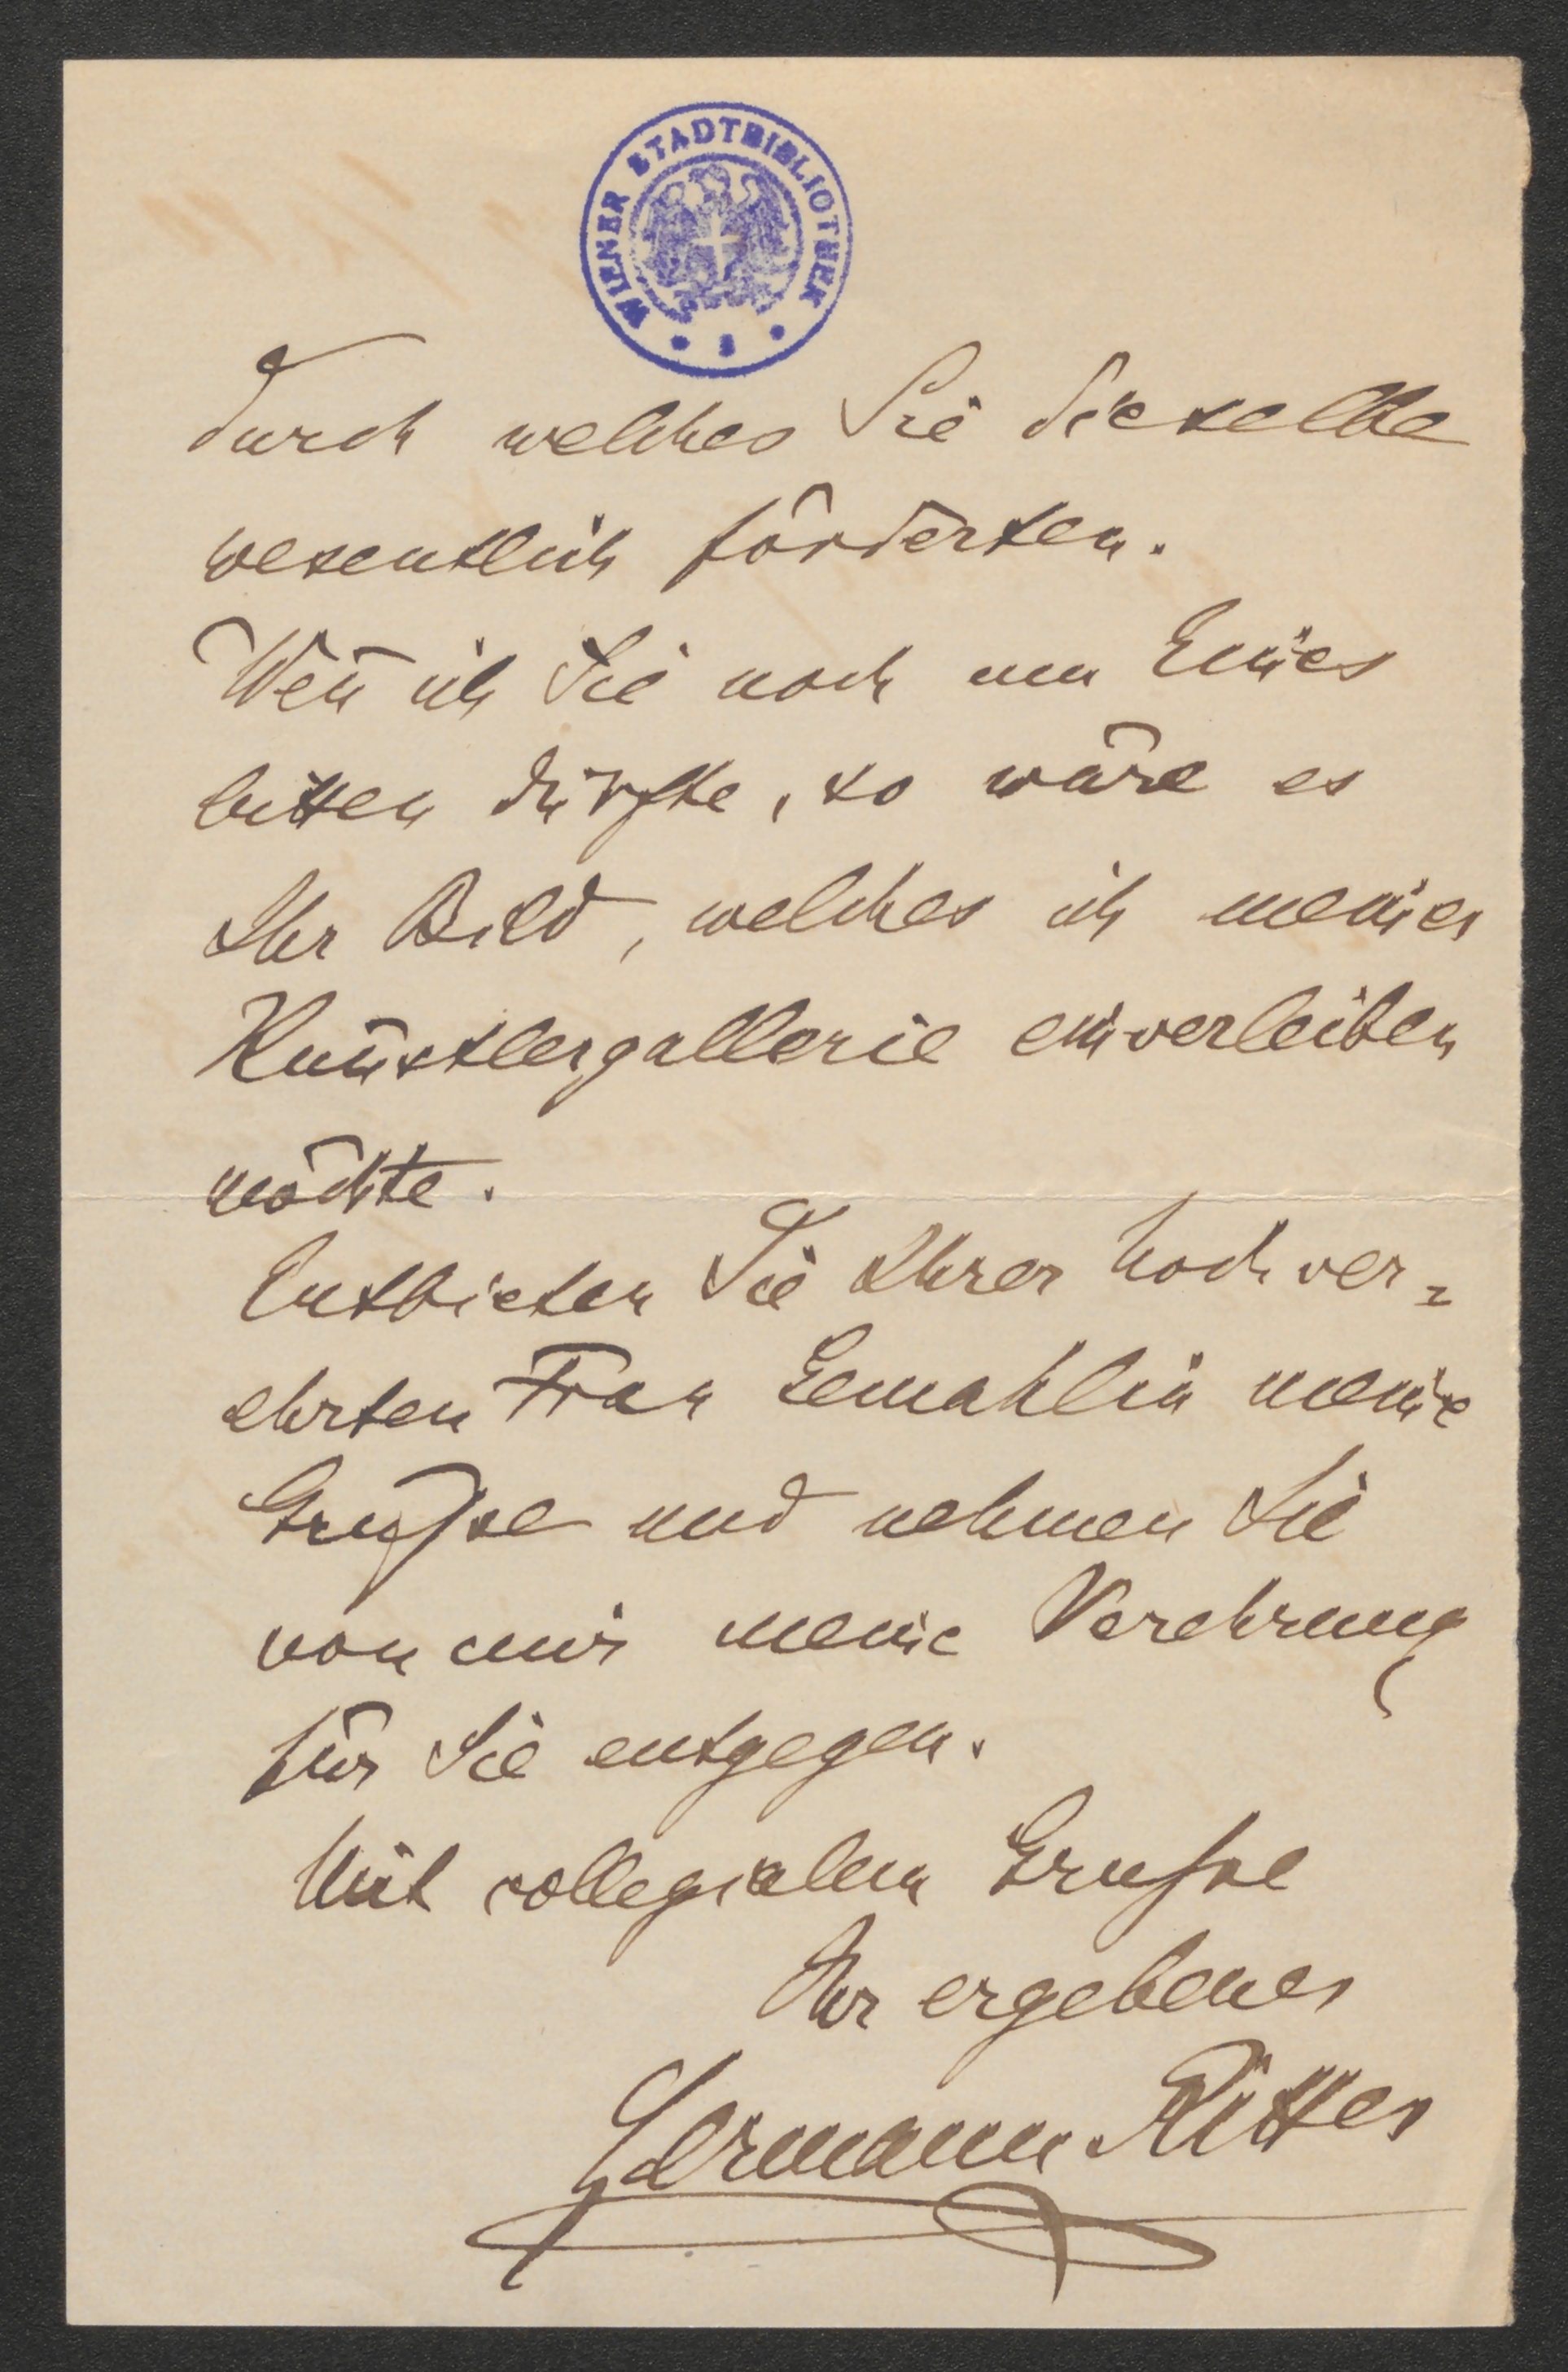 WIENER STADTBIBLIOTHEK
durch welches Sie dieselbe
wesentlich förderten.
Weñ ich Sie noch um Eines
bitten dürfte, so wäre es
Ihr Bild, welches ich meiner
Künstlergallerie einverleiben
möchte.
Entbieten Sie Ihrer hochver=
ehrten Frau Gemahlin meine
Grüsse und nehmen Sie
von mir meine Verehrung
für Sie entgegen.
Mit collegialem Grusse
Ihr ergebener
Hermann Ritter